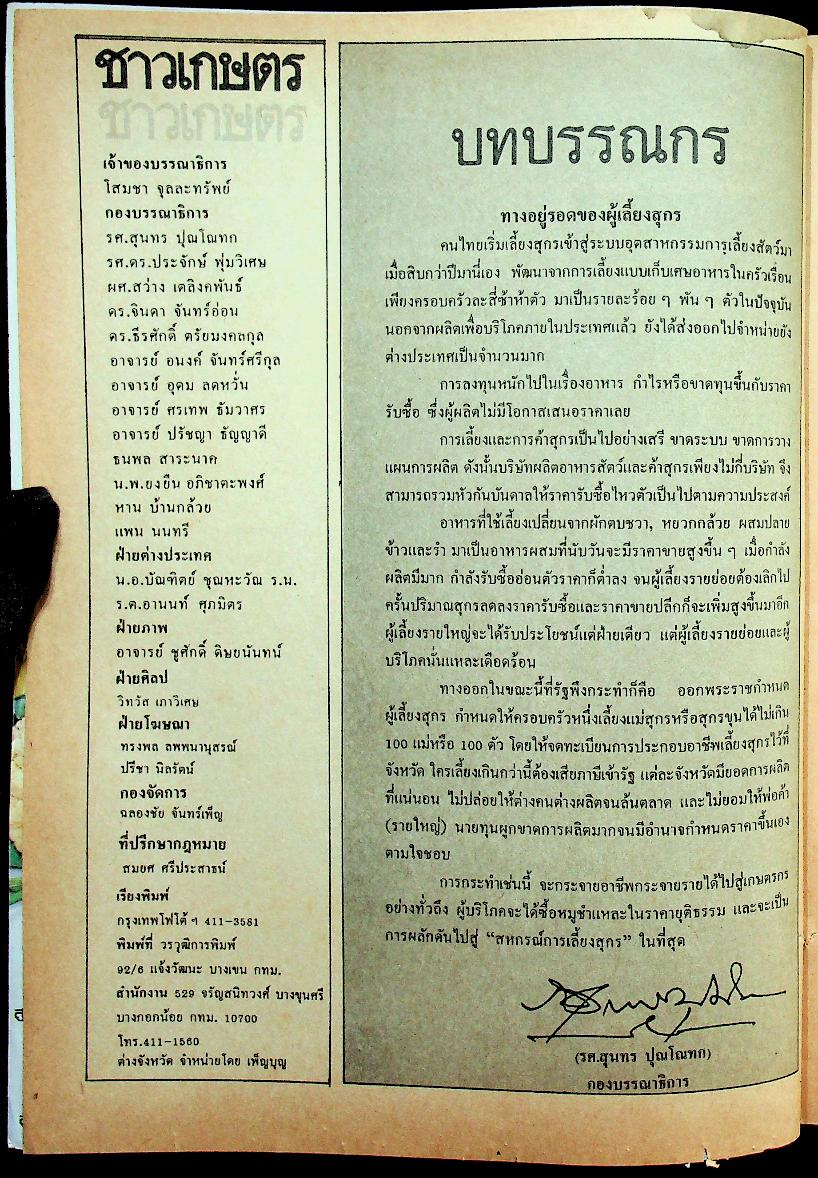 ชาวเกษตร
ชาวเกษตร
เจ้าของบรรณาธิการ
โสมชา จุลละทรัพย์
กองบรรณาธิการ
รศ.สุนทร ปุณโณทก
รศ.ดร.ประจักษ์ พุ่มวิเศษ
ผศ.สว่าง เตลิงคพันธ์
ดร.จินดา จันทร์อ่อน
ดร.ธีรศักดิ์ ตรัยมงคลกุล
อาจารย์ อนงค์ จันทร์ศรีกุล
อาจารย์ อุดม ลดหวั่น
อาจารย์ ศรเทพ ธัมวาศร
อาจารย์ ปรัชญา ธัญญาดี
ธนพล สาระนาค
น.พ.ยงยืน อภิชาตะพงศ์
หาน บ้านกล้วย
แพน นนทรี
ฝ่ายต่างประเทศ
น.อ.บัณฑิตย์ ชุณหะวัณ ร.น.
ร.ต.อานนท์ ศุภมิตร
ฝ่ายภาพ
อาจารย์ ชูศักดิ์ ดิษยนันทน์
ฝ่ายศิลป
วิทวัส เภาวิเศษ
ฝ่ายโฆษณา
ทรงพล ลพพนานุสรณ์
ปรีชา นิลรัตน์
กองจัดการ
ฉลองชัย จันทร์เพ็ญ
ที่ปรึกษากฎหมาย
สมยศ ศรีประสาธน์
เรียงพิมพ์
กรุงเทพโฟโต้ ฯ 411-3581
พิมพ์ที่ วรวุฒิการพิมพ์
92/6 แจ้งวัฒนะ บางเขน กทม.
สำนักงาน 529 จรัญสนิทวงศ์ บางขุนศรี
บางกอกน้อย กทม. 10700
โทร.411-1560
ต่างจังหวัด จำหน่ายโดย เพ็ญบุญ
บทบรรณกร
ทางอยู่รอดของผู้เลี้ยงสุกร
คนไทยเริ่มเลี้ยงสุกรเข้าสู่ระบบอุตสาหกรรมการเลี้ยงสัตว์มา
เมื่อสิบกว่าปีมานี่เอง พัฒนาจากการเลี้ยงแบบเก็บเศษอาหารในครัวเรือน
เพียงครอบครัวละสี่ซ้าห้าตัว มาเป็นรายละร้อย ๆ พัน ๆ ตัวในปัจจุบัน
นอกจากผลิตเพื่อบริโภคภายในประเทศแล้ว ยังได้ส่งออกไปจำหน่ายยัง
ต่างประเทศเป็นจำนวนมาก
การลงทุนหนักไปในเรื่องอาหาร กำไรหรือขาดทุนขึ้นกับราคา
รับซื้อ ซึ่งผู้ผลิตไม่มีโอกาสเสนอราคาเลย
การเลี้ยงและการค้าสุกรเป็นไปอย่างเสรี ขาดระบบ ขาดการวาง
แผนการผลิต ดังนั้นบริษัทผลิตอาหารสัตว์และค้าสุกรเพียงไม่กี่บริษัท จึง
สามารถรวมหัวกันบันดาลให้ราคารับซื้อไหวตัวเป็นไปตามความประสงค์
อาหารที่ใช้เลี้ยงเปลี่ยนจากผักตบชวา, หยวกกล้วย ผสมปลาย
ข้าวและรำ มาเป็นอาหารผสมที่นับวันจะมีราคาขายสูงขึ้น ๆ เมื่อกำลัง
ผลิตมีมาก กำลังรับซื้ออ่อนตัวราคาก็ต่ำลง จนผู้เลี้ยงรายย่อยต้องเลิกไป
ครั้นปริมาณสุกรลดลงราคารับซื้อและราคาขายปลีกก็จะเพิ่มสูงขึ้นมาอีก
ผู้เลี้ยงรายใหญ่จะได้รับประโยชน์แต่ฝ่ายเดียว แต่ผู้เลี้ยงรายย่อยและผู้
บริโภคนั่นแหละเดือดร้อน
ทางออกในขณะนี้ที่รัฐพึงกระทำก็คือ ออกพระราชกำหนด
ผู้เลี้ยงสุกร กำหนดให้ครอบครัวหนึ่งเลี้ยงแม่สุกรหรือสุกรขุนได้ไม่เกิน
100 แม่หรือ 100 ตัว โดยให้จดทะเบียนการประกอบอาชีพเลี้ยงสุกรไว้ที่
จังหวัด ใครเลี้ยงเกินกว่านี้ต้องเสียภาษีเข้ารัฐ แต่ละจังหวัดมียอดการผลิต
ที่แน่นอน ไม่ปล่อยให้ต่างคนต่างผลิตจนล้นตลาด และไม่ยอมให้พ่อค้า
(รายใหญ่) นายทุนผูกขาดการผลิตมากจนมีอำนาจกำหนดราคาขึ้นเอง
ตามใจชอบ
การกระทำเช่นนี้ จะกระจายอาชีพกระจายรายได้ไปสู่เกษตรกร
อย่างทั่วถึง ผู้บริโภคจะได้ซื้อหมูชำแหละในราคายุติธรรม และจะเป็น
การผลักดันไปสู่ “สหกรณ์การเลี้ยงสุกร” ในที่สุด
(รศ.สุนทร ปุณโณทก)
กองบรรณาธิการ